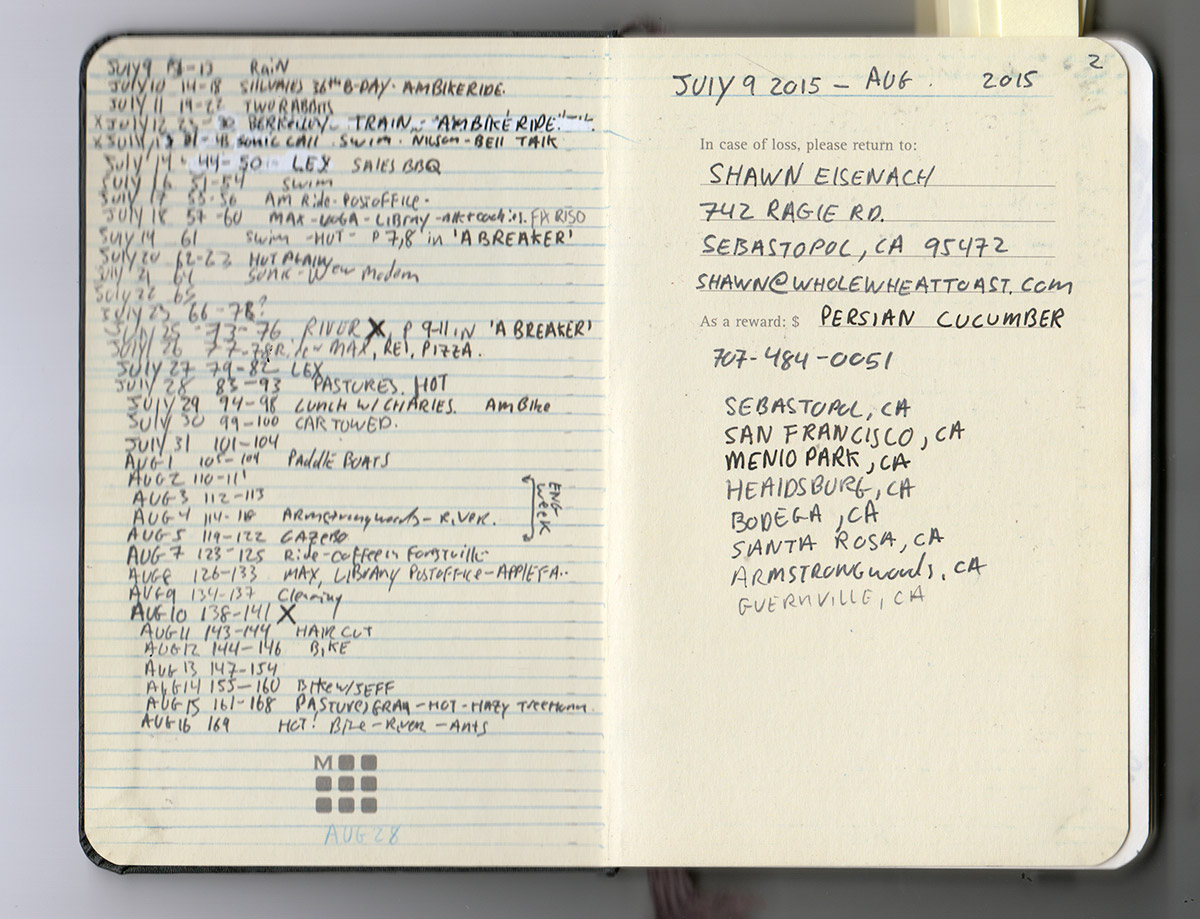 JULY 9 P1-13 RAIN
JULY 10 14-18 36th B-DAY. AM BIKE RIDE.
JULY 11 19-22 TWO RABBITS
X JULY 12 23-30 BERKELEY - TRAIN - "AM BIKE RIDE"
X JULY 13 31-43 SONIC CALL. SWIM. NILSON-BELL TALK
JULY 14 44-50 LEX SALES BBQ
JULY 16 51-54 SWIM
JULY 17 55-56 AM Ride-POSTOFFICE-
JULY 18 57-60 MAX-YOGA-LIBRARY-
JULY 19 61 SWIM-HOT- P 7,8 in 'A BREAKER'
JULY 20 62-63 HOT PLAIN
JULY 21 64 SONIC-New Modem
JULY 22 65
JULY 23 66-78?
JULY 25 -73-76 RIVER X, P 9-11 IN 'A BREAKER'
JULY 26 77-78 MAX, REI, PIZZA.
JULY 27 79-82 LEX
JULY 28 83-93 PASTURES. HOT
JULY 29 94-98 LUNCH W/ CHARLES. AM BIKE
JULY 30 99-100 CAR TOWED.
JULY 31 101-104
AUG 1 105-109 PADDLE BOATS
AUG 2 110-111
AUG 3 112-113
AUG 4 114-118 ARMSTRONG woods-RIVER.
AUG 5 119-122 GAZEBO
ENG WEEK
AUG 7 123-125 Ride-coffee in Forestville
AUG 8 126-133 MAX, LIBRARY POSTOFFICE-APPLE FA..
AUG 9 134-137 Cleaning
AUG 10 138-141 X
AUG 11 143-144 HAIR CUT
AUG 12 144-146 BIKE
AUG 13 147-154
AUG 14 155-160 BIKE W/JEFF
AUG 15 161-168 -HOT-HAZY
AUG 16 169 HOT! BIKE-RIVER-ANTS
M
AUG 28
2
JULY 9 2015 - AUG. 2015
In case of loss, please return to:
SHAWN EISENACH
742 RAGLE RD.
SEBASTOPOL, CA 95472
SHAWN@WHOLEWHEATTOAST.COM
As a reward: $ PERSIAN CUCUMBER
707-484-0051
SEBASTOPOL, CA
SAN FRANCISCO, CA
MENLO PARK, CA
HEALDSBURG, CA
BODEGA, CA
SANTA ROSA, CA
ARMSTRONG woods, CA
GUERNVILLE, CA